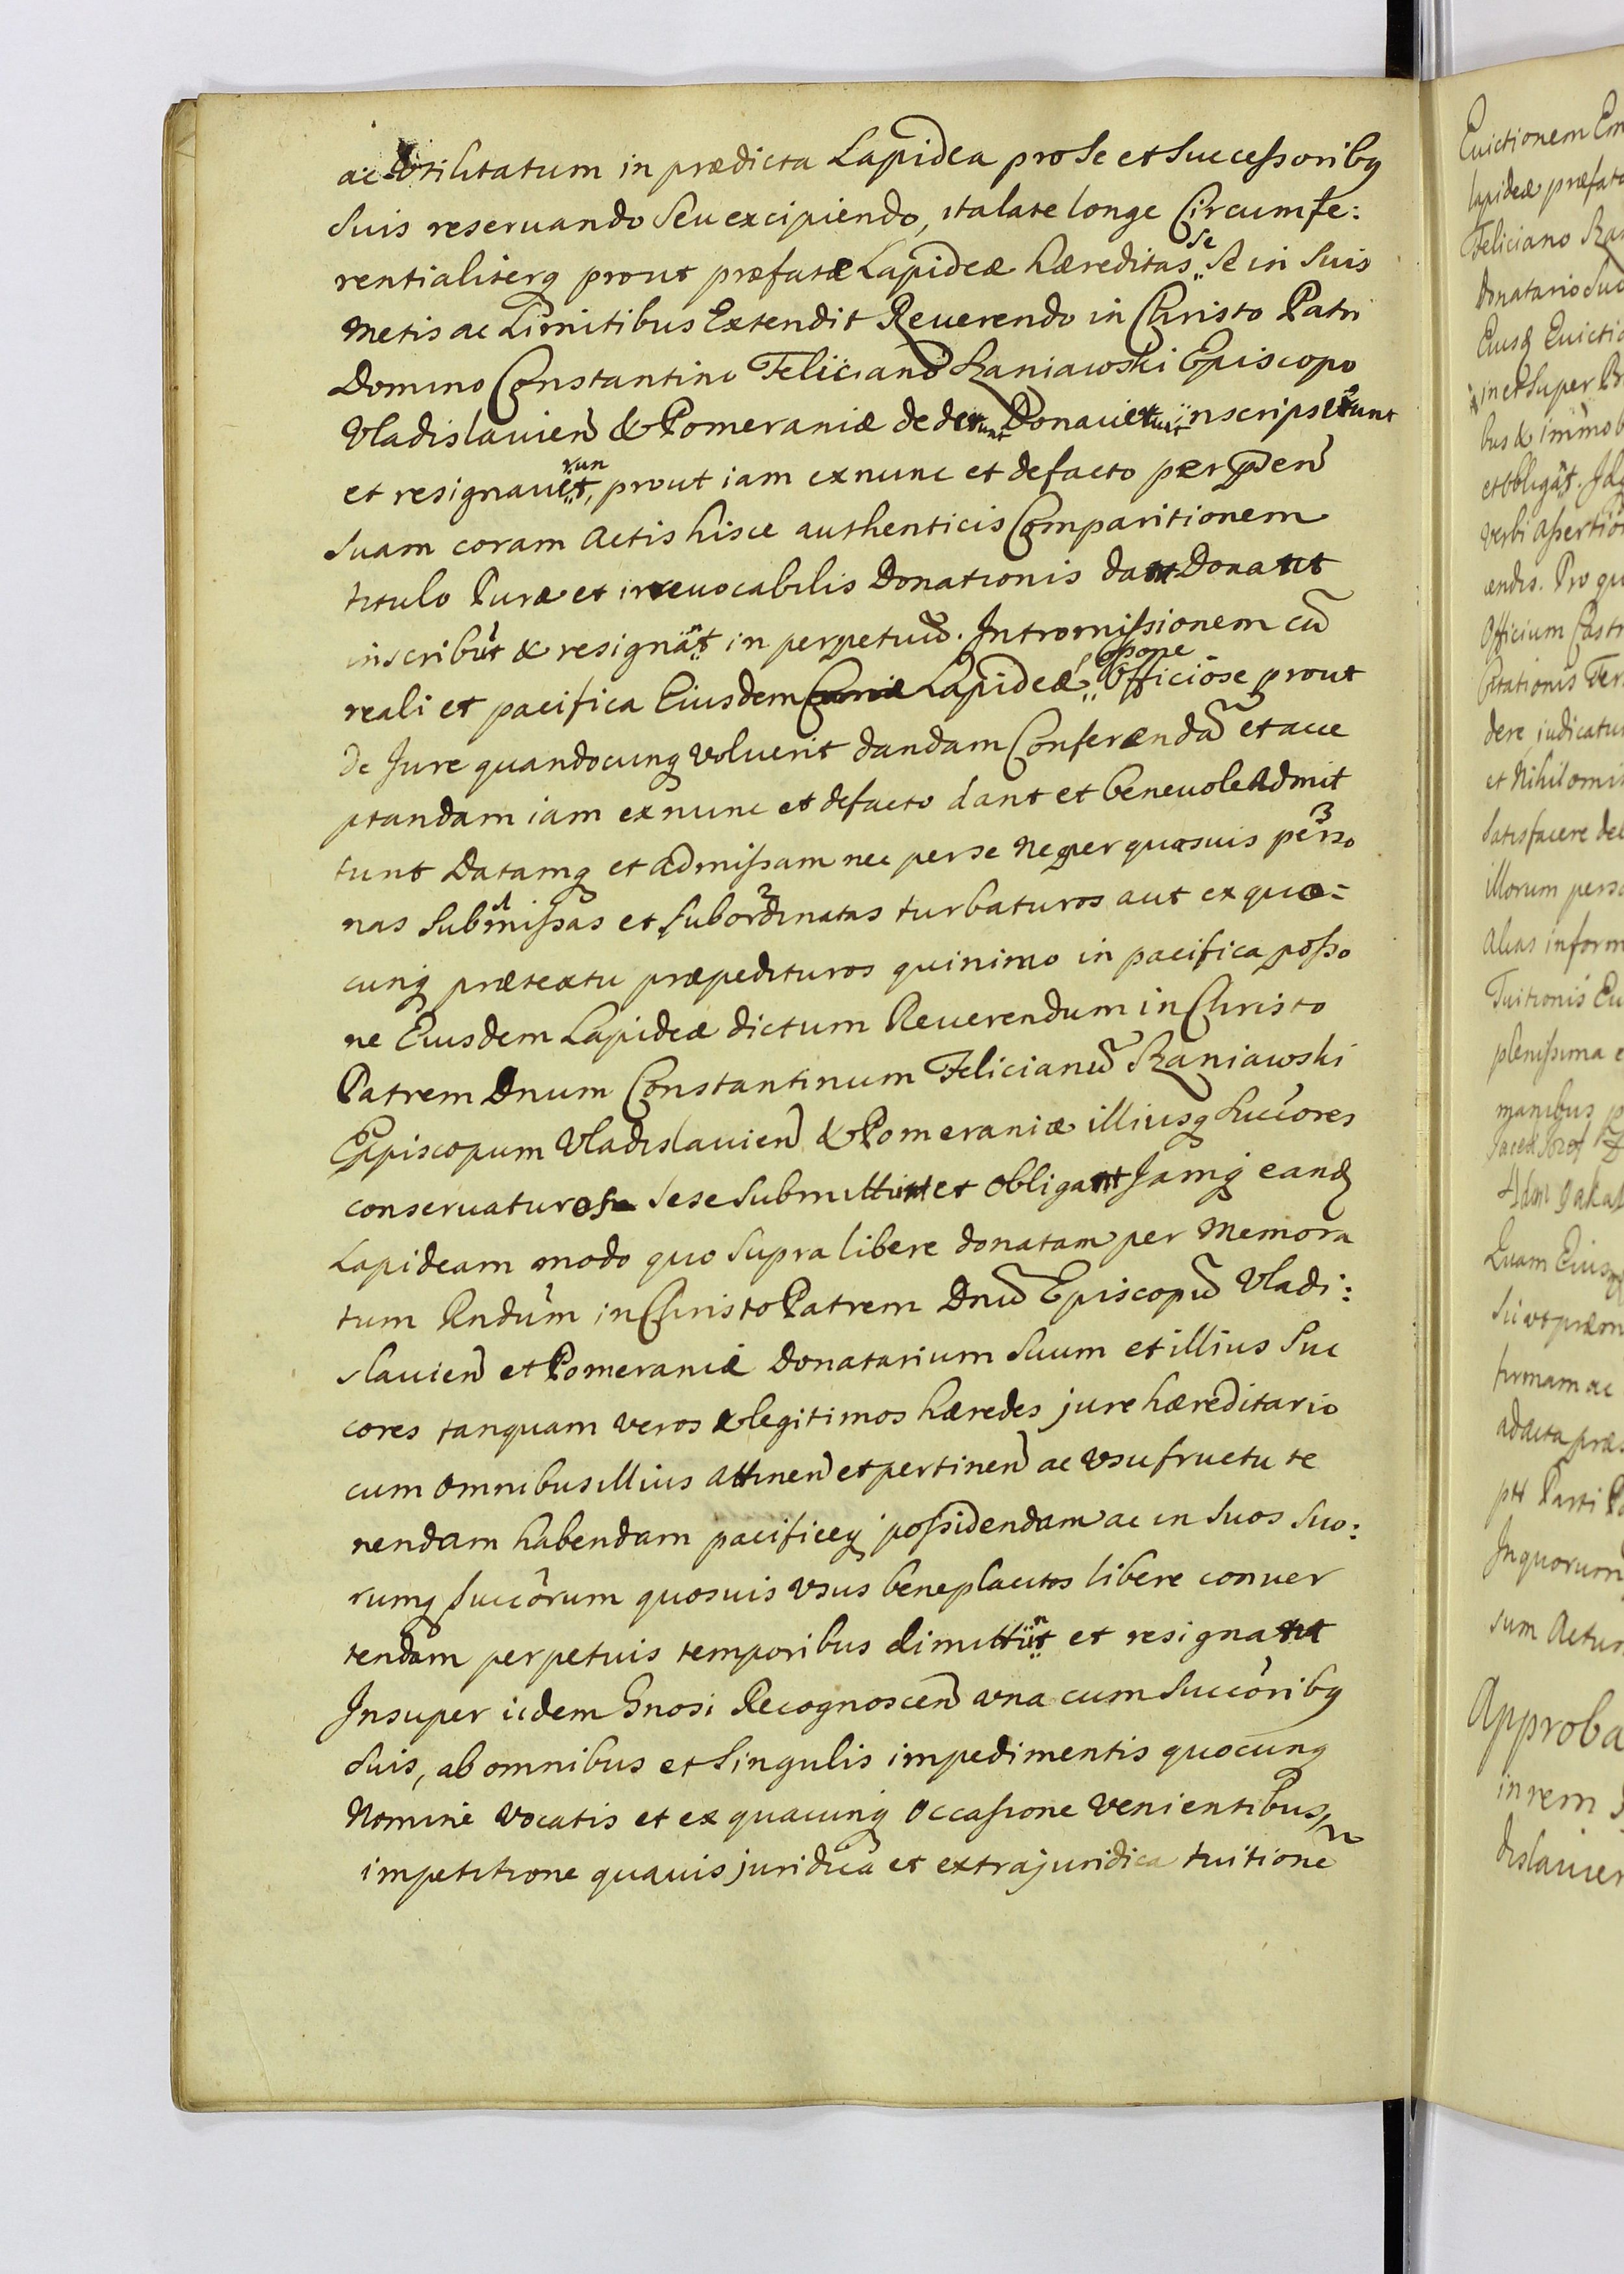 ac Utilitatum in prædicta Lapidea pro Se et Successoribq
Suis reseruando Seu excipiendo, ita late longe Circumfe:
rentialiterq prout præfatæ Lapideæ hæreditas Se in Suis
Metis ac Limitibus Extendit Reuerendo in Christo Patri
Domino Constantino Feliciano Szaniawski Episcopo
Vladislauien̄ & Pomeraniæ dederunt Donauerunt inscripserunt
et resignauerunt, prout iam ex nunc et de facto per p̄sen̄
Suam coram Actis hisce authenticis Comparitionem
titulo Puræ et irreuocabilis Donationis dant Donant
inscribūt & resignānt in perpetuū. Intromissionem cū
reali et pacifica Eiusdem Lapideæ possone Officiose prout
de Jure quandocunq Voluerit dandam Conferendā et acce
ptandam iam ex nunc et defacto dant et beneuole Admit
tunt Datamq et admissam nec per se Neq per quasuis perso
nas Submissas et Subordinatas turbaturos aut ex quo=
cunq prætextu præpedituros quinimo in pacifica posso
ne Eiusdem Lapideæ dictum Reuerendum in Christo
Patrem Dnum Constantinum Felicianū Szaniawski
Episcopum Vladislauien̄ & Pomeraniæ illiusq Succores
conseruaturos sese Submittunt et Obligant Jamq eand
Lapideam modo quo Supra libere donatam per Memora
tum Rndum in Christo Patrem Dnū Episcopū Vladi:
slauien̄ et Pomeraniæ Donatarium Suum et illius Suc
cores tanquam veros & legitimos hæredes jure hæreditario
cum Omnibus illius Attinen̄ et pertinen̄ ac Vsufructu te
nendam habendam pacificeq possidendam ac in Suos Suo:
rumq Succorum quosuis Vsus beneplacitos libere conuer
tendam perpetuis temporibus dimittūnt et resignant
Insuper iidem Gnosi Recognoscen̄ vna cum Succoribq
Suis, ab omnibus et Singulis impedimentis quocunq
Nomine Vocatis et ex quacunq Occasione Venientibus,
impetitione quauis juridica et extrajuridica tuitione
Euictionem
lapideæ præfatæ
Feliciano
Donatario Suc
Eiusq Euictio
inet Super
bus & immob
et Obligāt.
Verbi Assertio
endis. Pro qu
Officium Castr
Citationis Ter
dere judicatu
et Nihilomi
Satisfacere de
illorum perso
Alias inform
Tuitionis Eu
plenissima e
manibus
Quam Eius
firmam ac
ad acta præs
ptt Parti
In quorum
sum Actum
Approba
in rem
dislauien